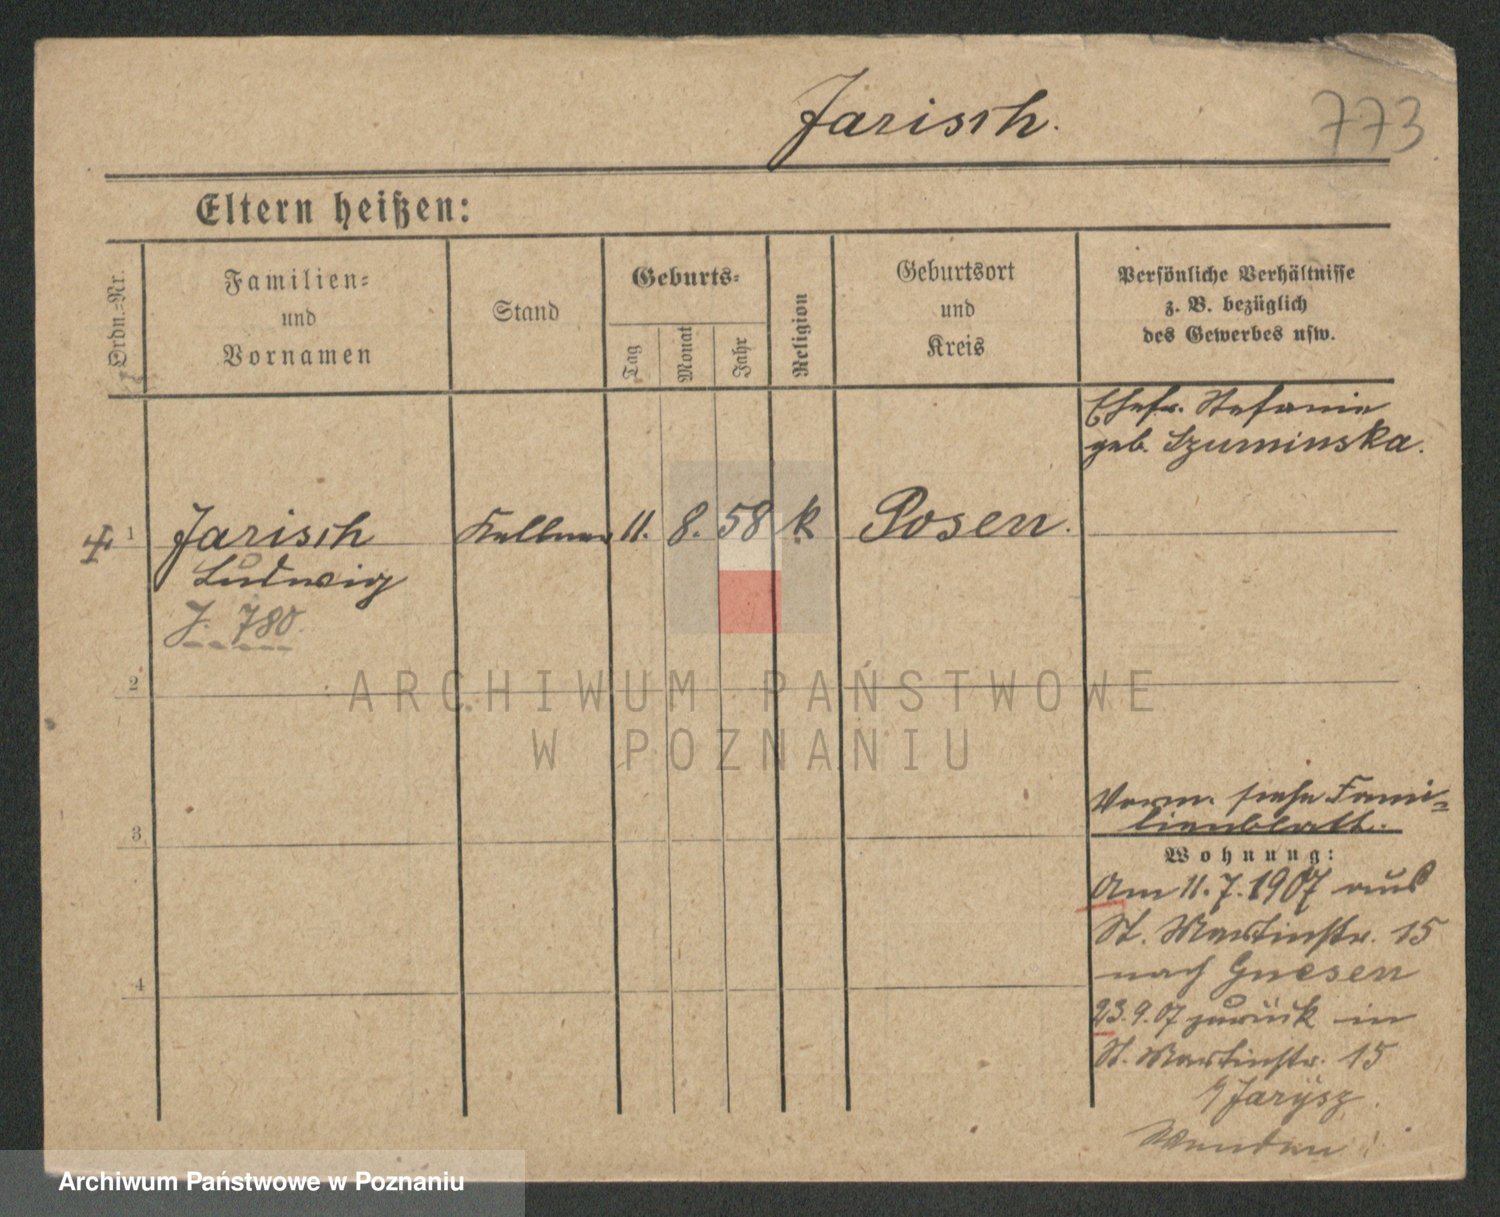 Jarisch.
773
Eltern heißen:
Ordn.-Nr.
Familien-
und
Vornamen
Stand
Geburts-
Tag
Monat
Jahr
Religion
Geburtsort
und
Kreis
Persönliche Verhältnisse
z. B. bezüglich
des Gewerbes usw.
Ehefr. Stefanie
geb. Szuminska.
1 Jarisch Kellner 11. 8. 58 k Posen.
Ludwig
J. 780
2
3
4
Vorm. siehe Fami-
lienblatt.
Wohnung:
Am 11.7.1907 aus
St. Martinstr. 15
nach Gnesen
23.9.07 zurück in
St. Martinstr. 15
Jarysz.
Wenden!
ARCHIWUM PAŃSTWOWE
W POZNANIU
Archiwum Państwowe w Poznaniu